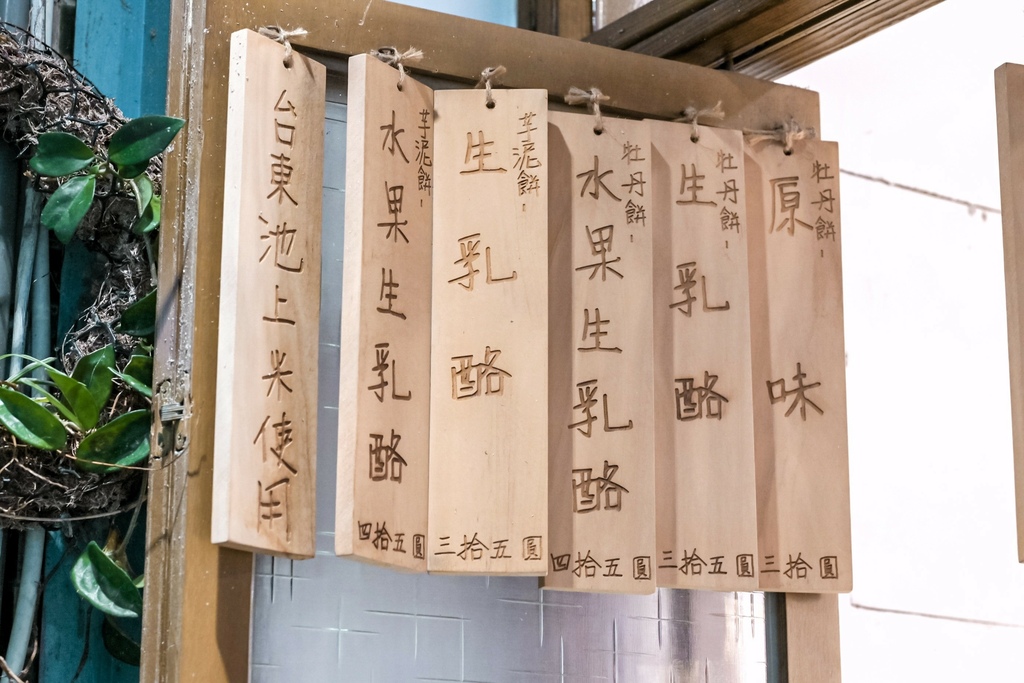 牡丹餅-
原味
三拾圓
牡丹餅-
生乳酪
三拾五圓
牡丹餅-
水果生乳酪
四拾五圓
芋泥餅-
生乳酪
三拾五圓
芋泥餅-
水果生乳酪
四拾五圓
台東池上米使用